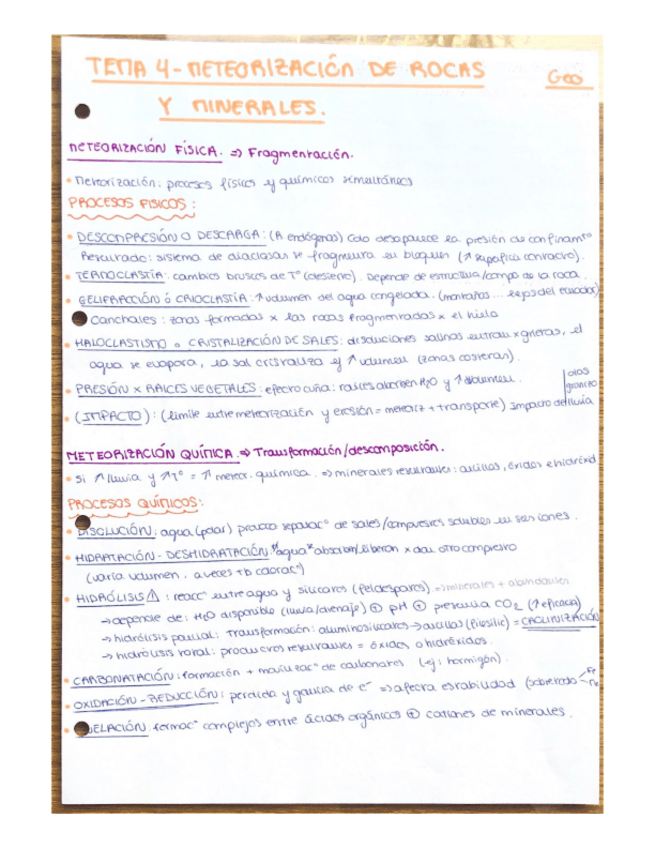 TEMA 4 - METEORIZACIÓN DE ROCAS
Geo
Y MINERALES.
METEORIZACIÓN FÍSICA. => Fragmentación.
• Meteorización: procesos físicos y químicos simultáneos
PROCESOS FISICOS:
• DESCOMPRESIÓN O DESCARGA: (A endógenos) Cdo desaparece la presión de confinamto
Resultado: sistema de diaclasas se fragmenta en bloques (↑ superficie contacto).
• TERMOCLASTIA: cambios bruscos de Tº (desierto). Depende de estructura/compo de la roca.
• GELIFRACCIÓN ó CRIOCLASTIA: ↑ volumen del agua congelada. (montañas... lejos del ecuador)
Canchales: zonas formadas x las rocas fragmentadas x el hielo
• HALOCLASTISMO o CRISTALIZACIÓN DE SALES: disoluciones salinas entran x grietas, el
agua se evapora, la sal cristaliza y ↑ volumen (zonas costeras).
• PRESIÓN X RAICES VEGETALES: efecto cuña: raíces absorben H₂O y ↑ volumen.
• (IMPACTO): (límite entre meteorización y erosión = meteoriz + transporte) Impacto de
olas
granizo
lluvia
METEORIZACIÓN QUÍMICA. => Transformación/descomposición.
• Si ↑ lluvia y ↑ Tº = ↑ meteor. química. => minerales resultantes: arcillas, óxidos e hidróxid
PROCESOS QUÍMICOS:
• DISOLUCIÓN: agua (polar) produce separacº de sales/compuestos solubles en sus iones.
• HIDRATACIÓN - DESHIDRATACIÓN: "agua" absorben/liberan x dar otro compuesto
(varía volumen, a veces tb coloracº)
• HIDRÓLISIS ⚠: reaccº entre agua y silicatos (feldespatos). => minerales + abundantes
→ depende de: H₂O disponible (lluvia/drenaje) ⊕ pH ⊕ presencia CO₂ (↑ eficacia)
→ hidrólisis parcial: transformación: aluminosilicatos → arcillas (filosilic) = CAOLINIZACIÓN
→ hidrólisis total: productos resultantes = óxidos o hidróxidos.
• CARBONATACIÓN: formación + movilizacº de carbonatos (ej: hormigón).
• OXIDACIÓN - REDUCCIÓN: pérdida y ganancia de e⁻ => afecta estabilidad (sobretodo Fe
• QUELACIÓN: formacº complejos entre ácidos orgánicos ⊕ cationes de minerales.